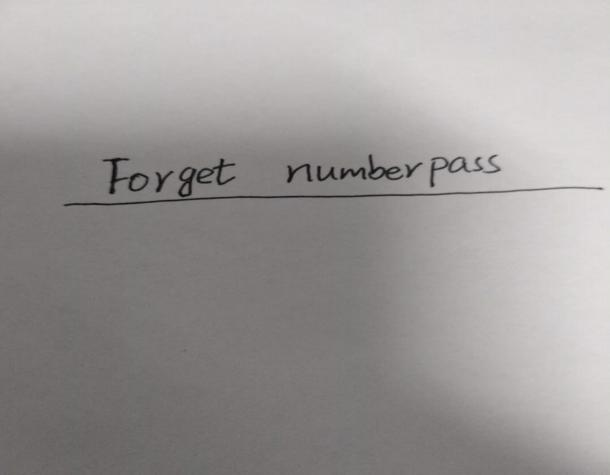 Forget numberpass